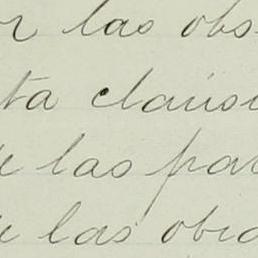 or las obs
ta clausu
e las par
e las obra